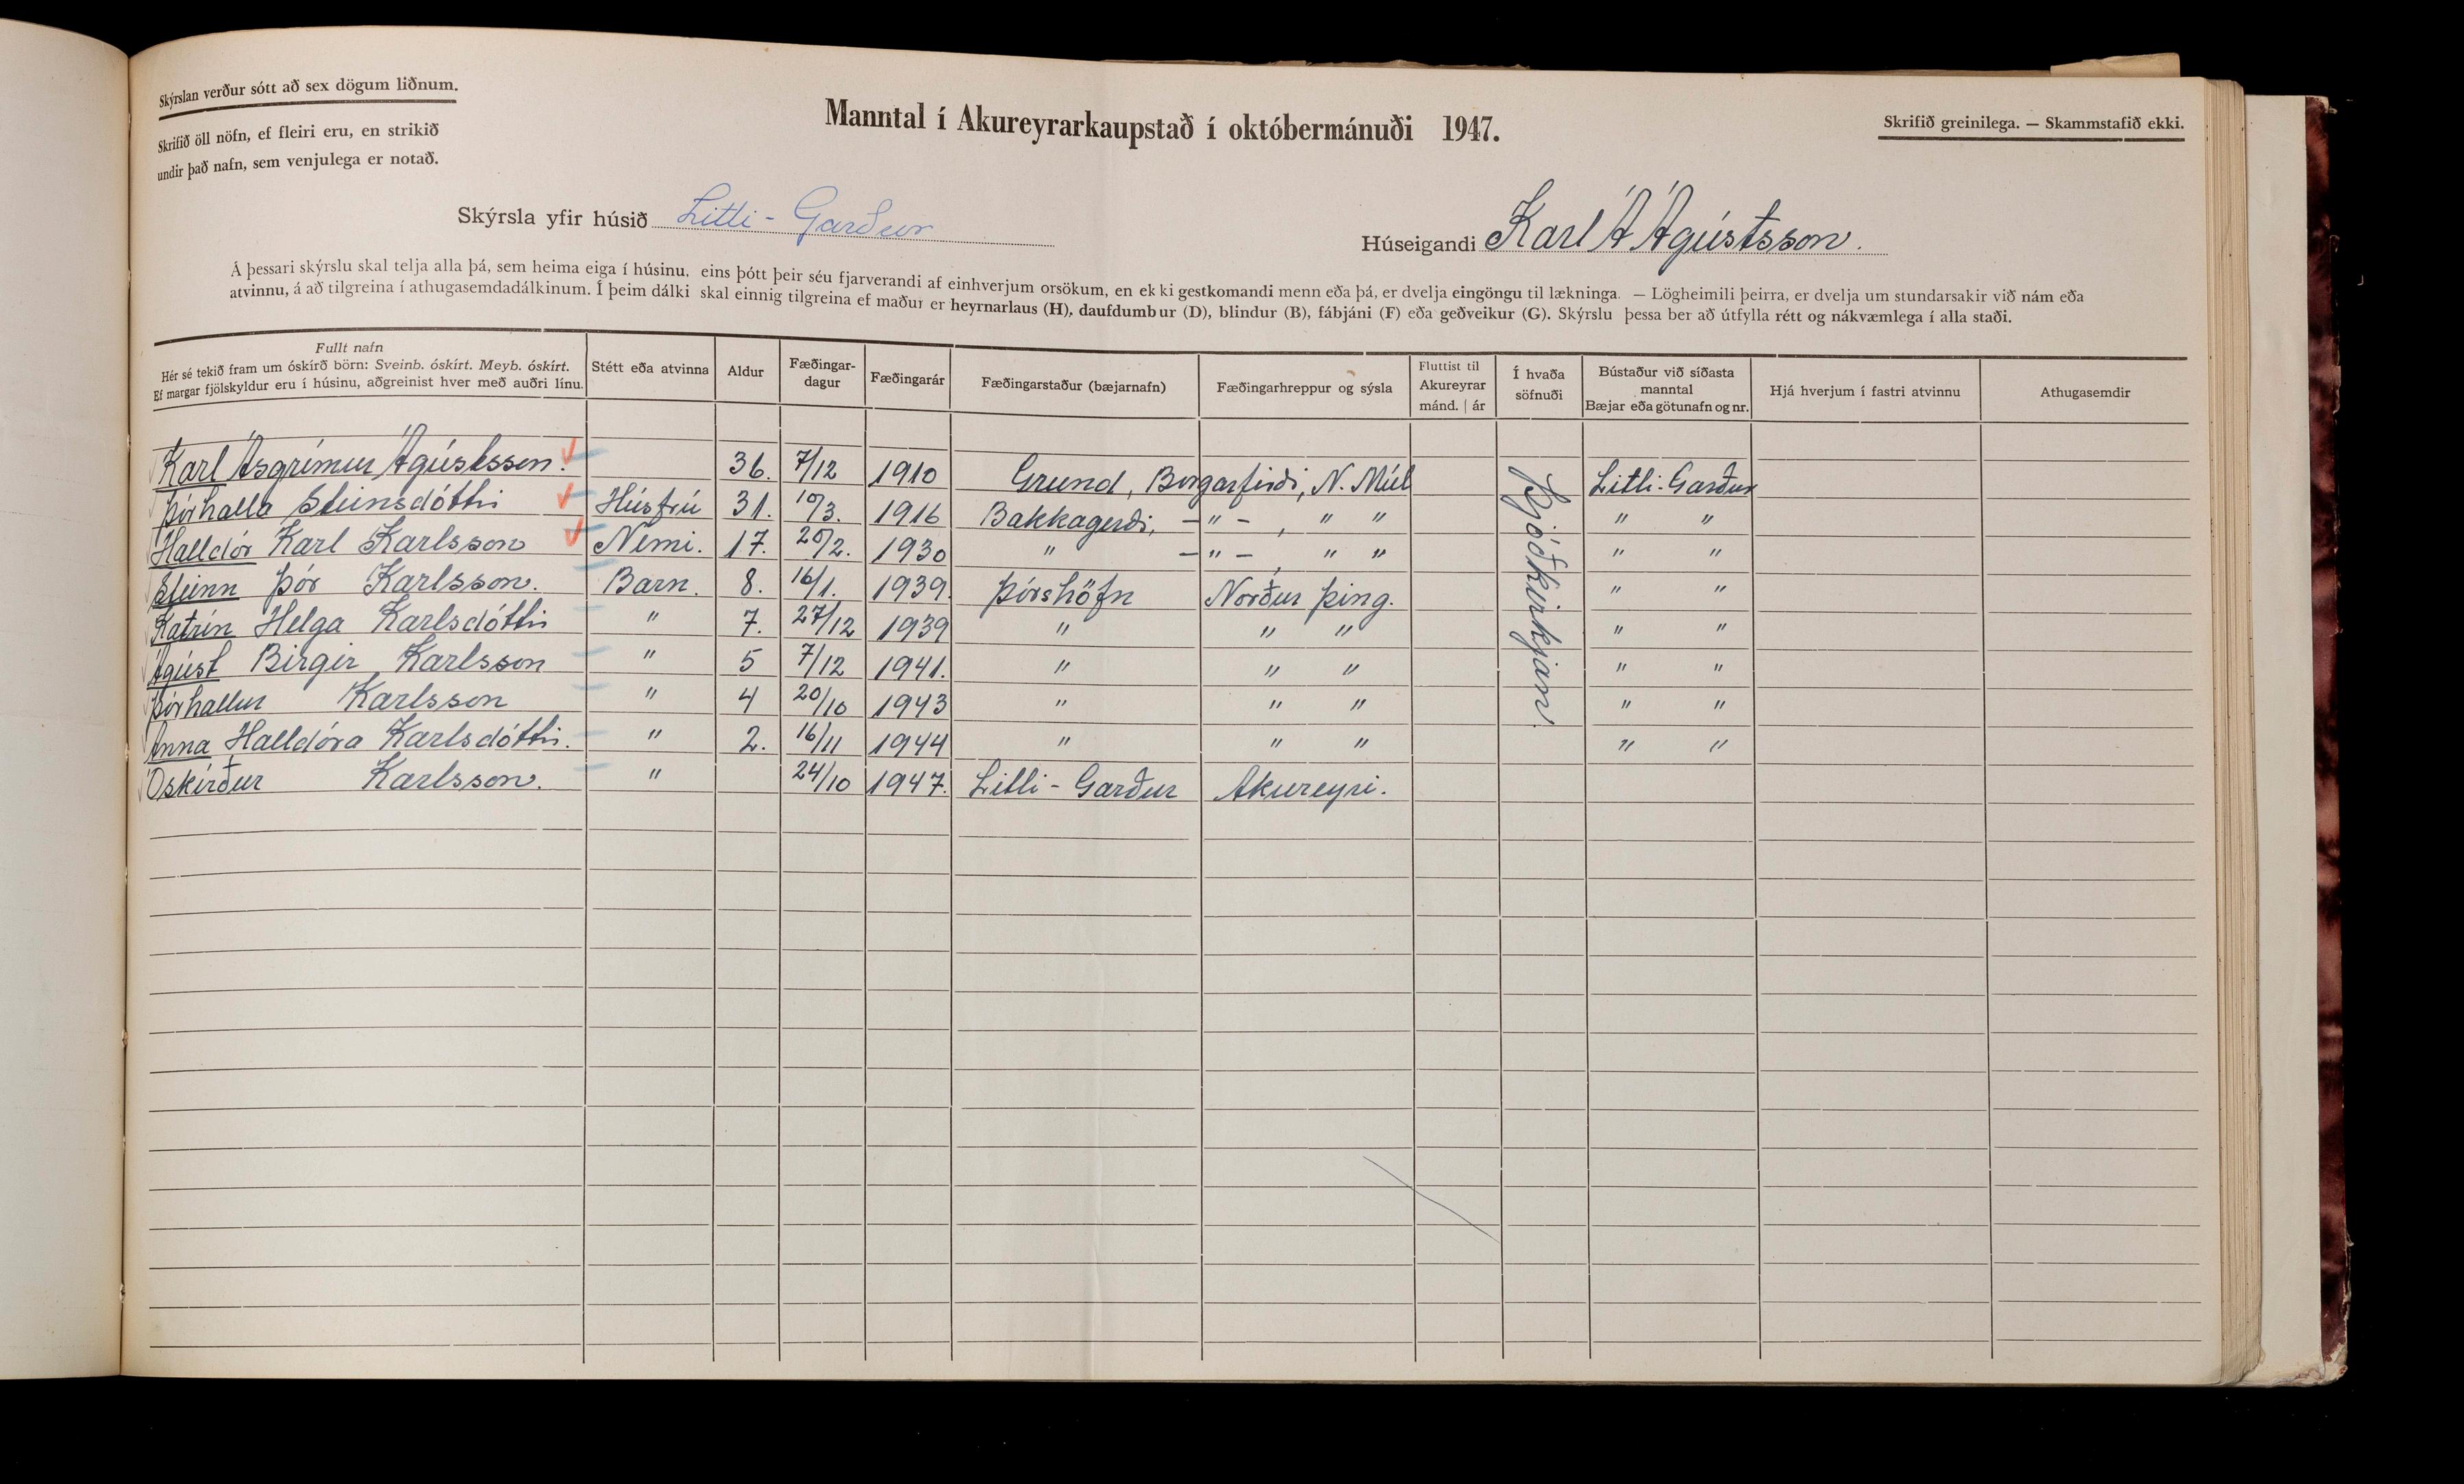 Skýrslan verður sótt að sex dögum liðnum.
Skrifið öll nöfn, ef fleiri eru, en strikið
undir það nafn, sem venjulega er notað.
Manntal í Akureyrarkaupstað í októbermánuði 1947.
Skrifið greinilega. — Skammstafið ekki.
Skýrsla yfir húsið Litli-Garður
Húseigandi Karl Á Ágústsson.
Á þessari skýrslu skal telja alla þá, sem heima eiga í húsinu, eins þótt þeir séu fjarverandi af einhverjum orsökum, en ekki gestkomandi menn eða þá, er dvelja eingöngu til lækninga. — Lögheimili þeirra, er dvelja um stundarsakir við nám eða
atvinnu, á að tilgreina í athugasemdadálkinum. Í þeim dálki skal einnig tilgreina ef maður er heyrnarlaus (H), daufdumbur (D), blindur (B), fábjáni (F) eða geðveikur (G). Skýrslu þessa ber að útfylla rétt og nákvæmlega í alla staði.
Fullt nafn
Hér sé tekið fram um óskírð börn: Sveinb. óskírt. Meyb. óskírt.
Ef margar fjölskyldur eru í húsinu, aðgreinist hver með auðri línu.
Stétt eða atvinna
Aldur
Fæðingar-
dagur
Fæðingarár
Fæðingarstaður (bæjarnafn)
Fæðingarhreppur og sýsla
Fluttist til
Akureyrar
mánd. | ár
Í hvaða
söfnuði
Bústaður við síðasta
manntal
Bæjar eða götunafn og nr.
Hjá hverjum í fastri atvinnu
Athugasemdir
Karl Ásgrímur Ágústsson. 36. 7/12 1910 Grund, Borgarfirði, N. Múl Litli-Garður
Þórhalla Steinsdóttir Húsfrú 31. 10/3. 1916 Bakkagerði, —"— , " " " "
Halldór Karl Karlsson Nemi. 17. 20/2. 1930 " —"— , " " " "
Steinn Þór Karlsson. Barn. 8. 16/1. 1939. Þórshöfn Norður Þing. " "
Katrín Helga Karlsdóttir " 7. 27/12 1939 " " " " "
Ágúst Birgir Karlsson " 5 7/12 1941. " " " " "
Þórhallur Karlsson " 4 20/10 1943 " " " " "
Anna Halldóra Karlsdóttir. " 2. 16/11 1944 " " " " "
Óskírður Karlsson. " 24/10 1947. Litli-Garður Akureyri.
Þjóðkirkjan.